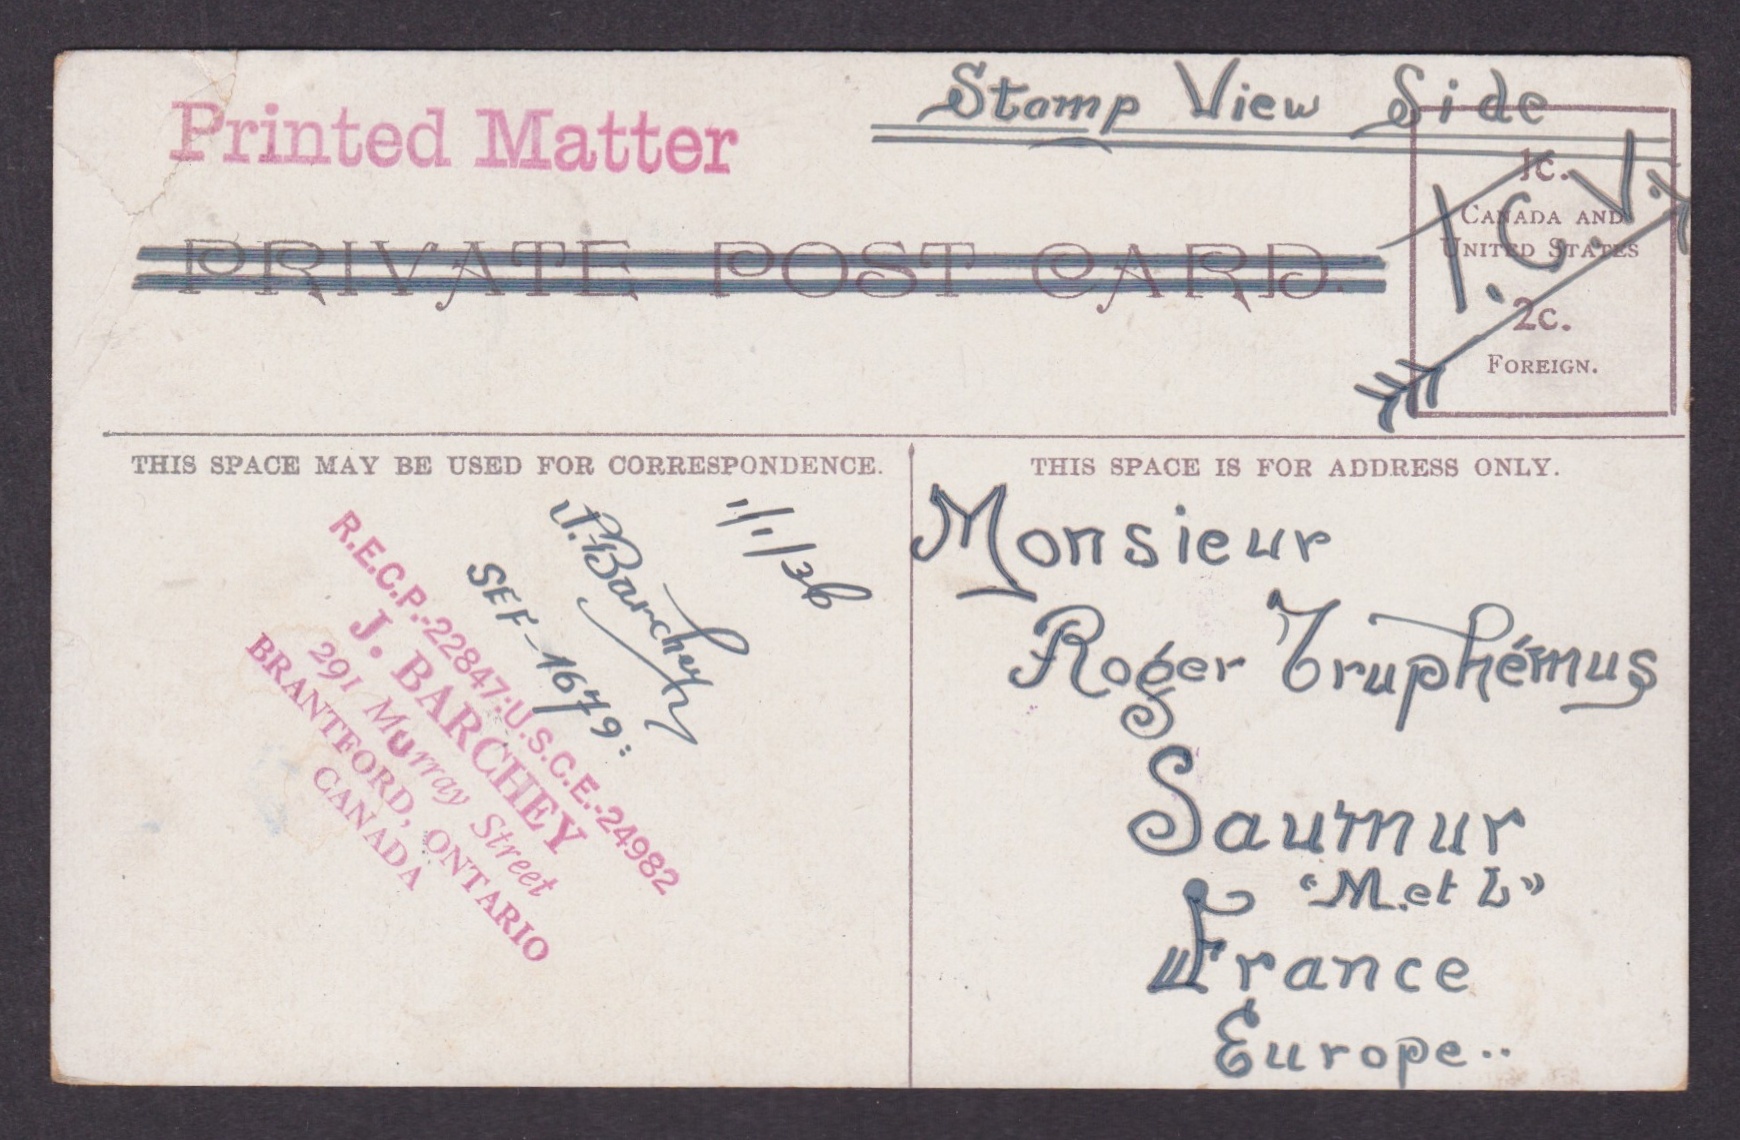 Printed Matter
Stamp View Side
PRIVATE POST CARD.
1c.
CANADA AND
UNITED STATES
2c.
FOREIGN.
I.C.V.
THIS SPACE MAY BE USED FOR CORRESPONDENCE.
1/1/36
J. Barchey
SEF-1679:
R.E.C.P.-22847:U.S.C.E.-24982
J. BARCHEY
291 Murray Street
BRANTFORD, ONTARIO
CANADA
THIS SPACE IS FOR ADDRESS ONLY.
Monsieur
Roger Truphémus
Saumur
"M.et L"
France
Europe..